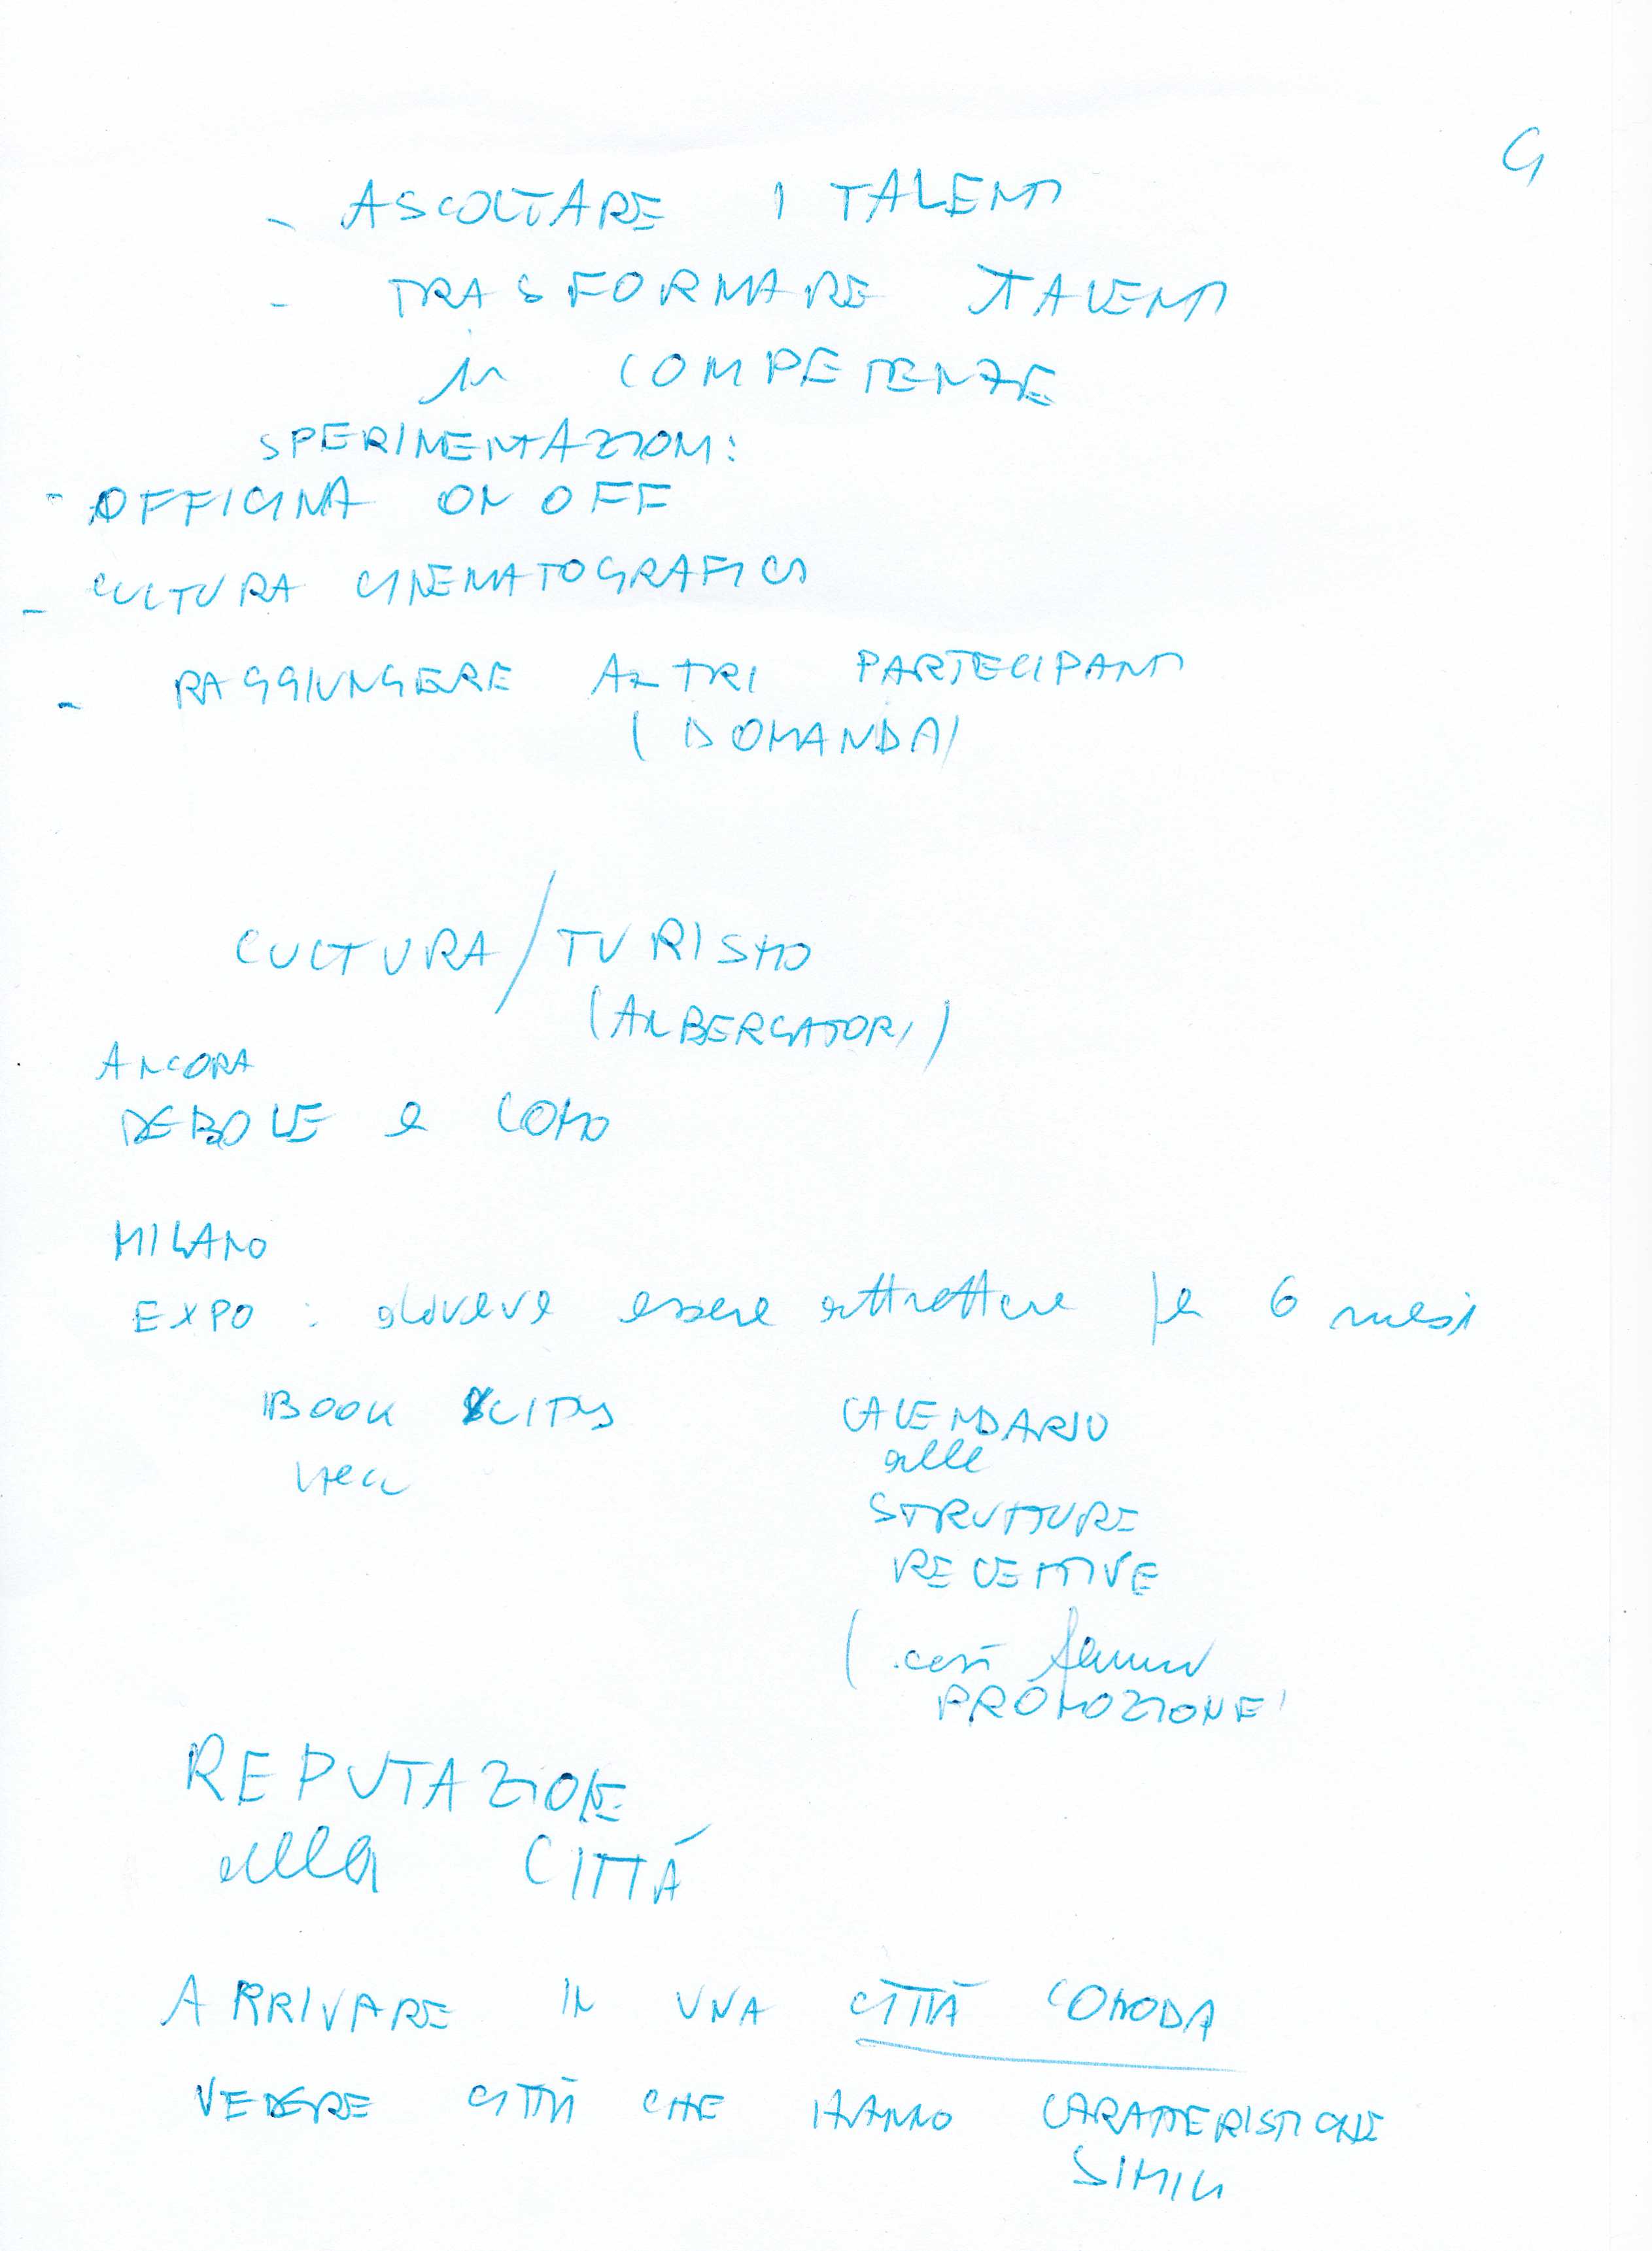 G
- ASCOLTARE I TALENTI
- TRASFORMARE TALENTI
in COMPETENZE
SPERIMENTAZIONI:
- OFFICINA ON OFF
- CULTURA CINEMATOGRAFICA
- RAGGIUNGERE ALTRI PARTECIPANTI
(DOMANDA)
CULTURA/TURISMO
(ALBERGATORI)
ANCORA
DEBOLE a COMO
MILANO
EXPO: doveva essere attrattiva per 6 mesi
BOOK CITY
CALENDARIO
alle
STRUTTURE
RECETTIVE
(così fanno
PROMOZIONE)
REPUTAZIONE
della CITTÀ
ARRIVARE IN UNA CITTÀ COMODA
VEDERE CITTÀ CHE HANNO CARATTERISTICHE
SIMILI